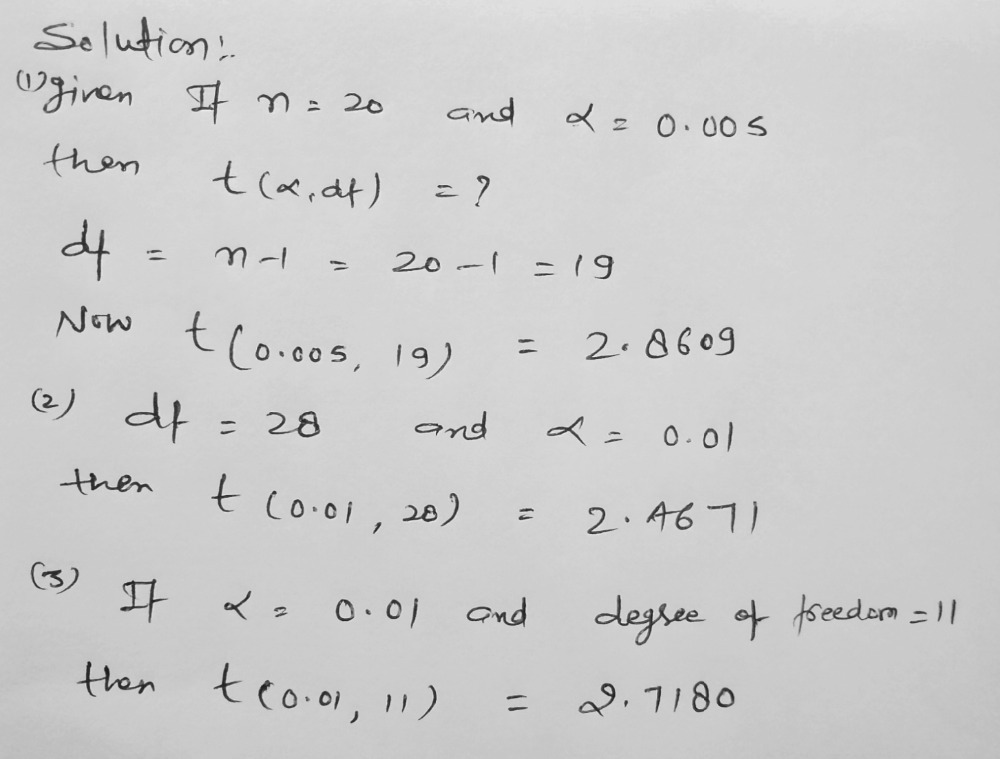 Solution:.
(1) given If n = 20 and α = 0.005
then t(α, df) = ?
df = n-1 = 20-1 = 19
Now t(0.005, 19) = 2.8609
(2) df = 28 and α = 0.01
then t(0.01, 28) = 2.4671
(3) If α = 0.01 and degree of freedom = 11
then t(0.01, 11) = 2.7180